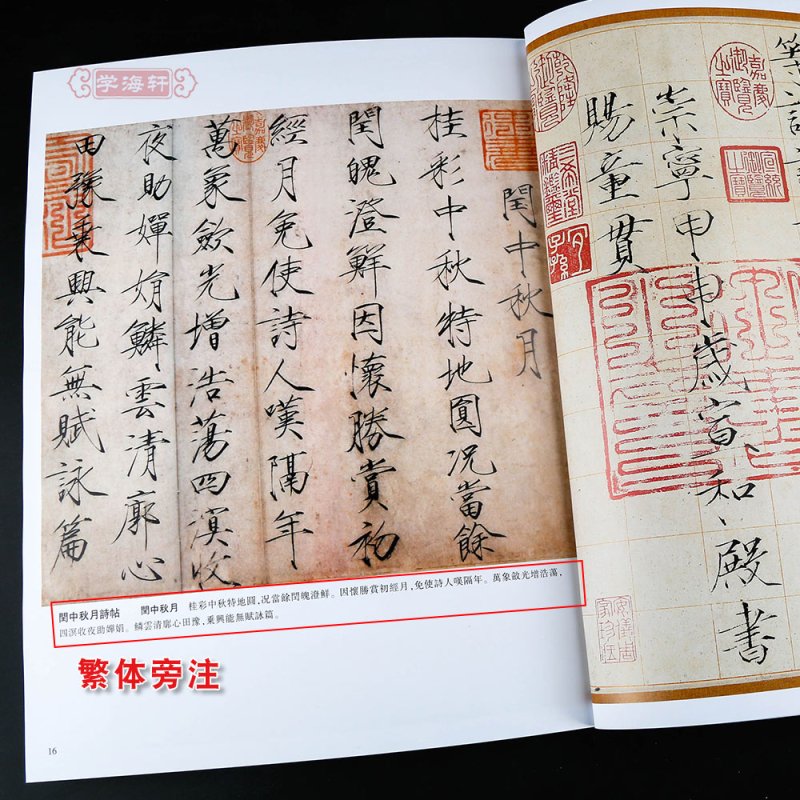 学海轩
閏中秋月
桂彩中秋特地圓况當餘
閏魄澄鮮因懷勝賞初
經月免使詩人嘆隔年
萬象斂光增浩蕩四溟收
夜助嬋娟鱗雲清廓心
田豫乘興能無賦詠篇
閏中秋月詩帖 閏中秋月 桂彩中秋特地圓,况當餘閏魄澄鮮。因懷勝賞初經月,免使詩人嘆隔年。萬象斂光增浩蕩,
四溟收夜助嬋娟。鱗雲清廓心田豫,乘興能無賦詠篇。
繁体旁注
16
崇寧甲申歲宣和殿書
賜童貫
嘉慶御覽之寶
乾隆御覽之寶
宣統御覽之寶